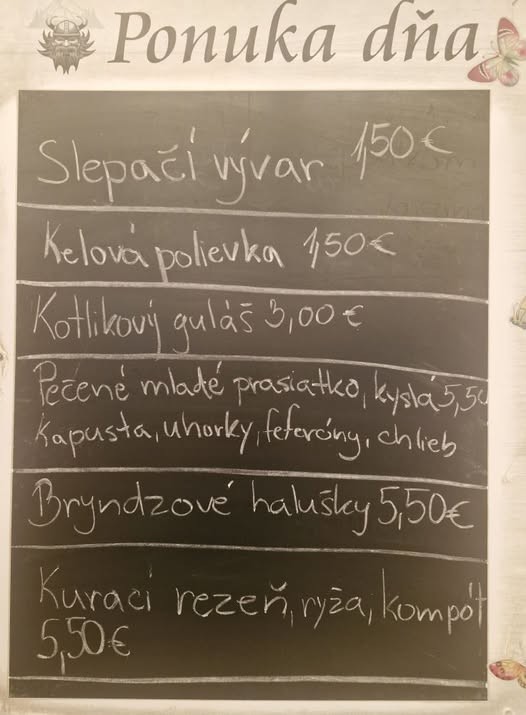 Ponuka dňa
Slepačí vývar 1,50€
Kelová polievka 1,50€
Kotlikový guláš 3,00€
Pečené mladé prasiatko, kyslá 5,50
kapusta, uhorky, feferóny, chlieb
Bryndzové halušky 5,50€
Kuraci rezeň, ryža, kompót
5,50€